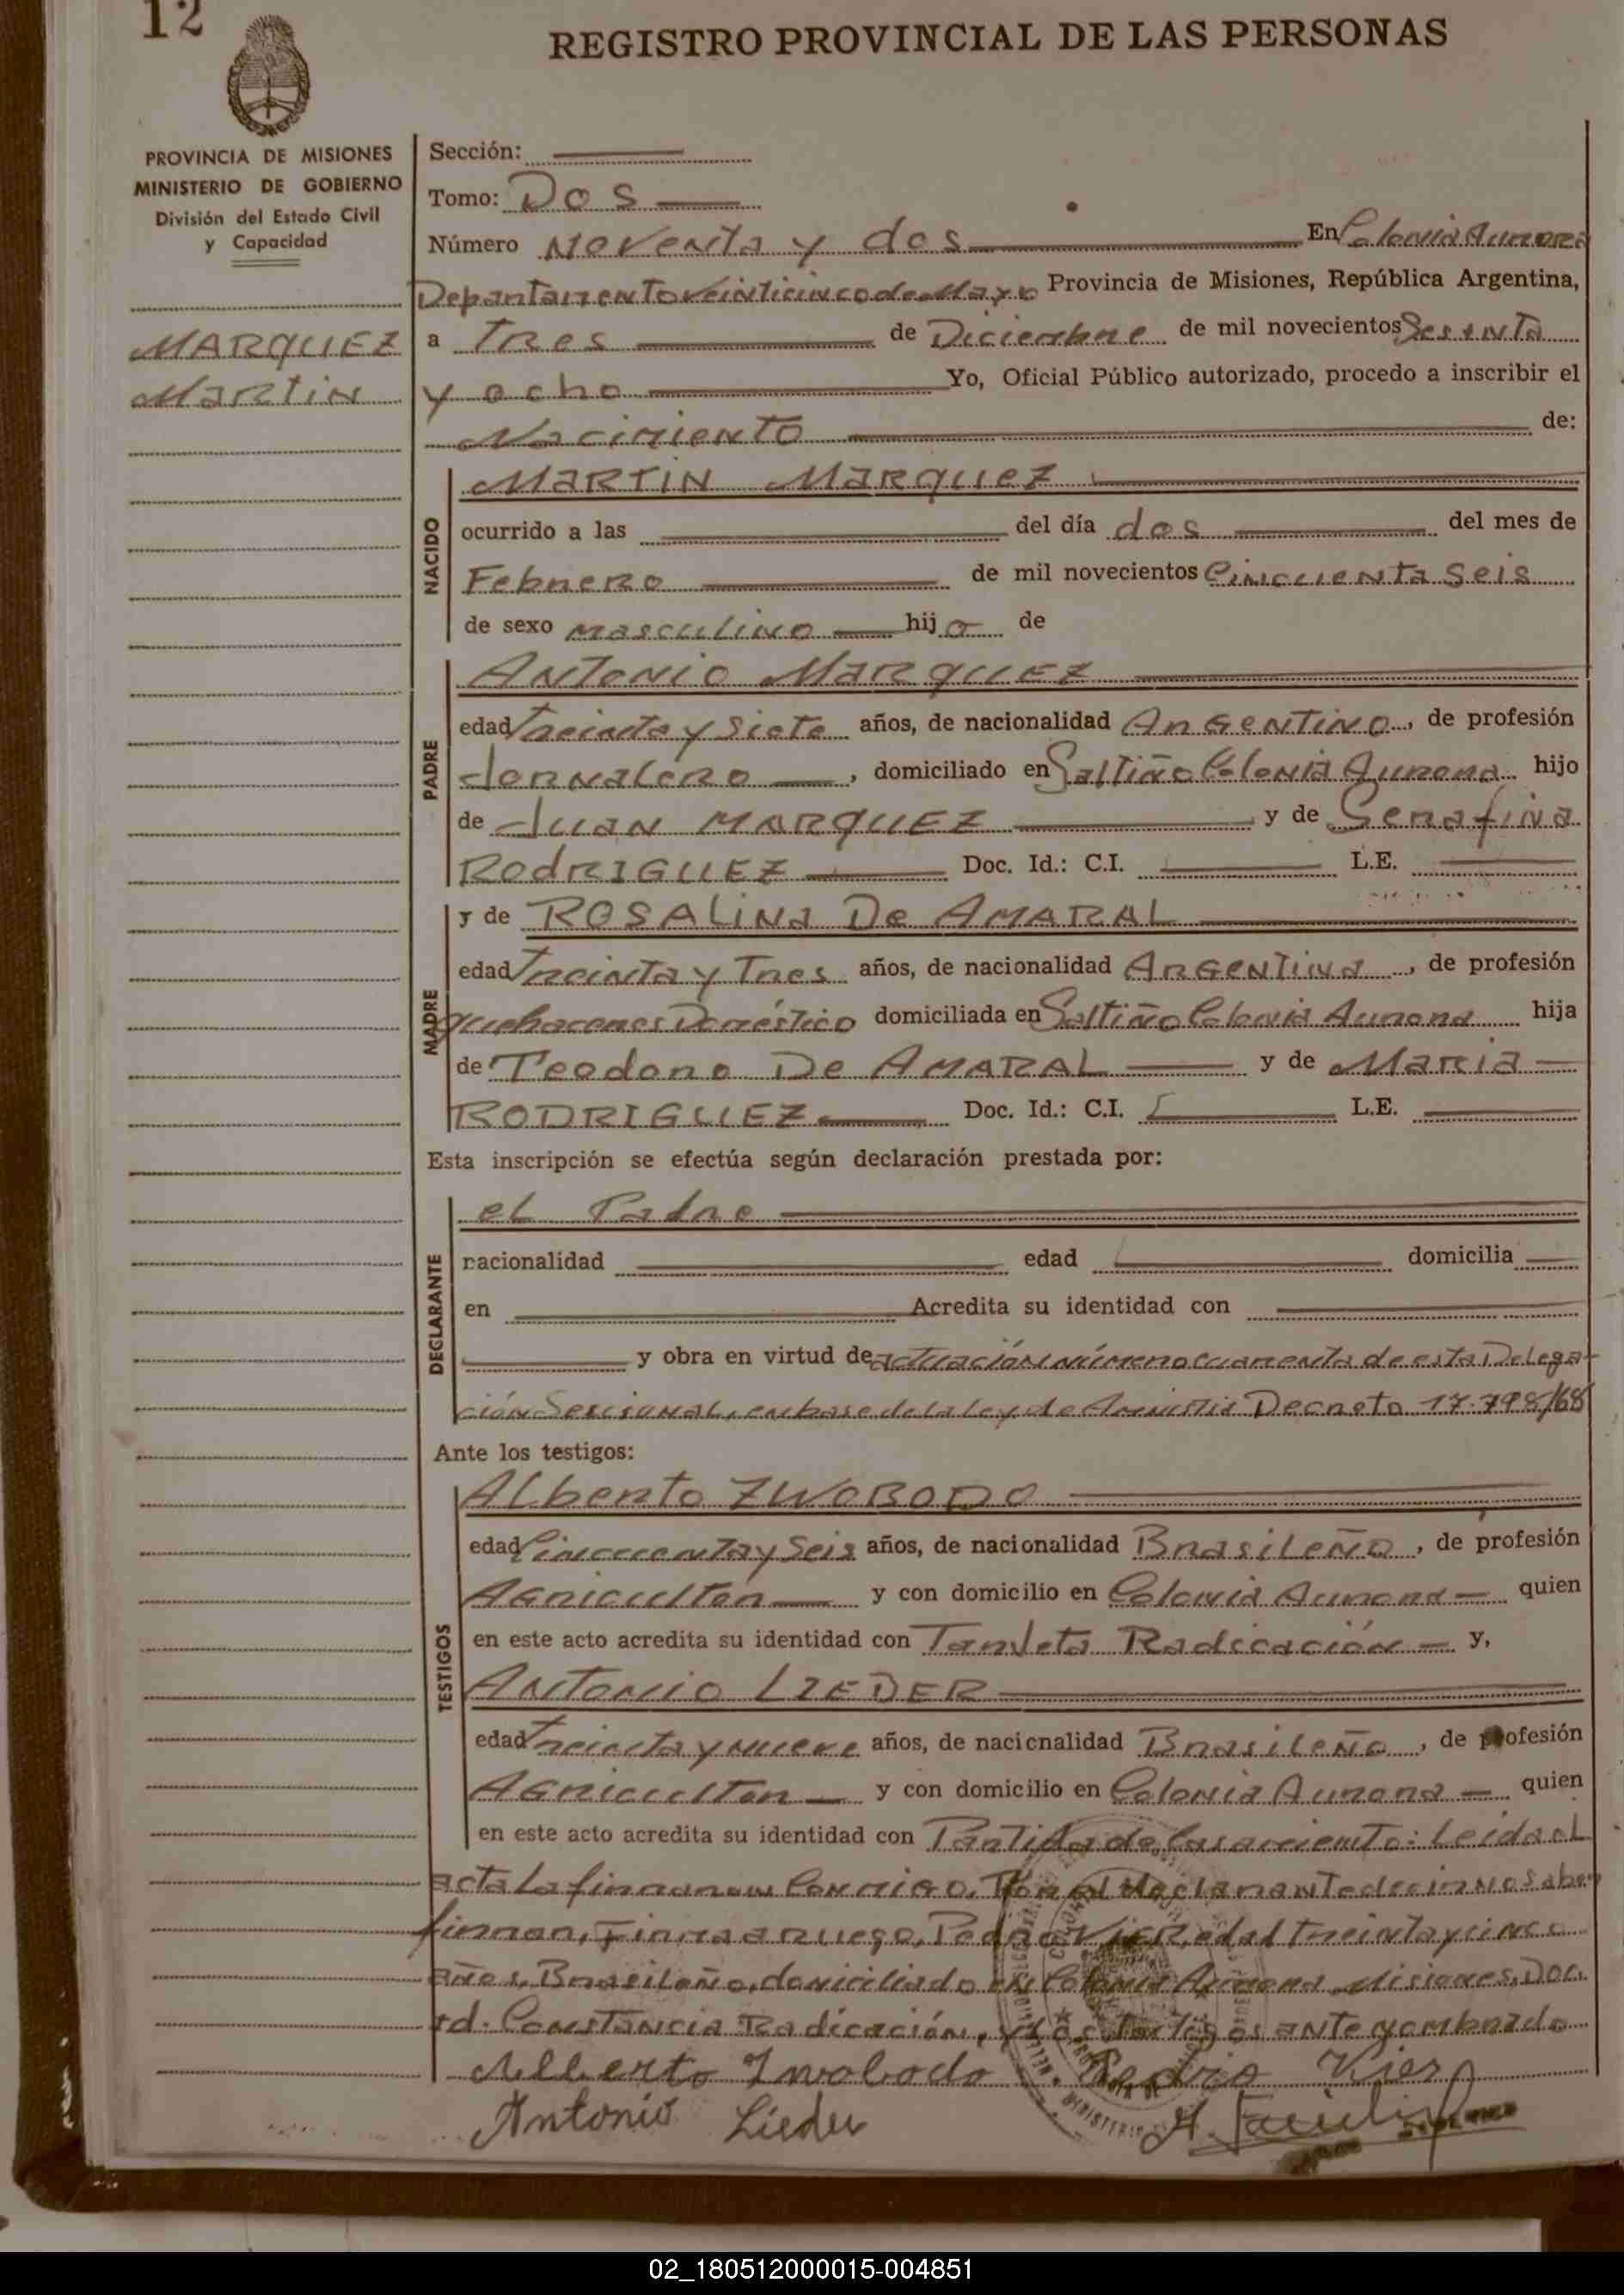 12
REGISTRO PROVINCIAL DE LAS PERSONAS
PROVINCIA DE MISIONES
MINISTERIO DE GOBIERNO
División del Estado Civil
y Capacidad
MARQUEZ
Martin
Sección:
Tomo: Dos
Número Noventa y dos En Colonia Aurora
Departamento Veinticinco de Mayo Provincia de Misiones, República Argentina,
a Tres de Diciembre de mil novecientos Sesenta
y ocho Yo, Oficial Público autorizado, procedo a inscribir el
Nacimiento de:
NACIDO
MARTIN MARQUEZ
ocurrido a las del día dos del mes de
Febrero de mil novecientos Cincuenta Seis
de sexo masculino hijo de
PADRE
ANTONIO MARQUEZ
edad Treinta y Siete años, de nacionalidad ARGENTINO, de profesión
Jornalero, domiciliado en Saltiño Colonia Aurora hijo
de JUAN MARQUEZ y de Serafina
RODRIGUEZ Doc. Id.: C.I. L.E.
MADRE
y de ROSALINA De AMARAL
edad Treinta y Tres años, de nacionalidad ARGENTINA, de profesión
quehaceres Doméstico domiciliada en Saltiño Colonia Aurora hija
de Teodoro De AMARAL y de Maria
RODRIGUEZ Doc. Id.: C.I. L.E.
Esta inscripción se efectúa según declaración prestada por:
DECLARANTE
el Padre
nacionalidad edad domicilia
en Acredita su identidad con
y obra en virtud de actuación número cuarenta de esta Delega-
ción Seccional, en base de la ley de Amnistia Decreto 17.798/68
Ante los testigos:
TESTIGOS
Alberto ZWOBODO
edad Cincuenta y Seis años, de nacionalidad Brasileño, de profesión
Agricultor y con domicilio en Colonia Aurora quien
en este acto acredita su identidad con Tarjeta Radicación y,
ANTONIO LIEDER
edad Treinta y nueve años, de nacionalidad Brasileño, de profesión
Agricultor y con domicilio en Colonia Aurora quien
en este acto acredita su identidad con Partida de Casamiento: Leida el
acta La firmaron Conmigo, Por el declarante decir no saber
firmar, Firma a ruego, Pedro Vier, edad Treinta y cinco
años, Brasileño, domiciliado en Colonia Aurora Misiones, Doc.
Id. Constancia Radicación, y los testigos ante nombrado
Alberto Zwobodo Pedro Vier
Antonio Lieder
02_180512000015-004851